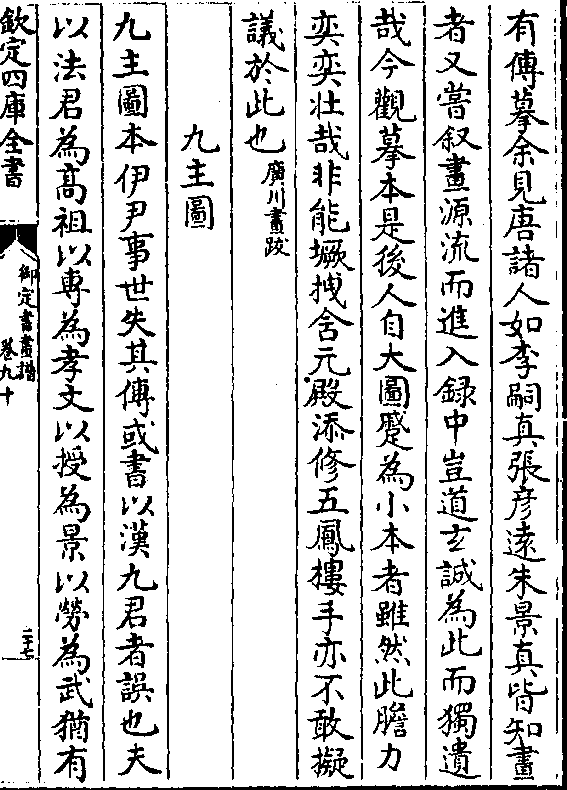 有傳摹余見唐諸人如李嗣真張彦逺朱景真皆知畫
者又嘗叙畫源流而進入録中豈道玄誠為此而獨遺
哉今觀摹本是後人自大圖蹙為小本者雖然此膽力
奕奕壯哉非能撅拽含元殿添修五鳳樓手亦不敢擬
議於此也廣川畫跋
九主圖
九主圖本伊尹事世失其傳或書以漢九君者誤也夫
以法君為髙祖以專為孝文以授為景以勞為武猶有
欽定四庫全書
御定書畫譜
卷九十
二十七